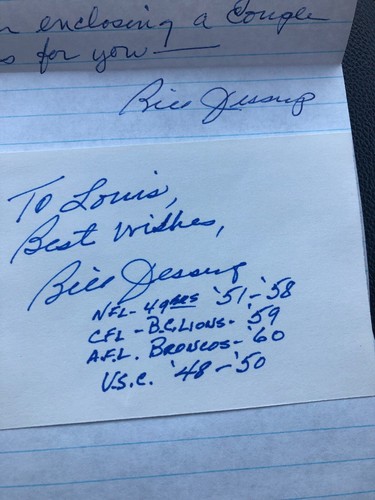 enclosing a couple
s for you —
Bill Jessup
To Louis,
Best Wishes,
Bill Jessup
NFL - 49ers '51-'58
CFL - B.C. LIONS - '59
A.F.L. BRONCOS - '60
U.S.C. '48-'50